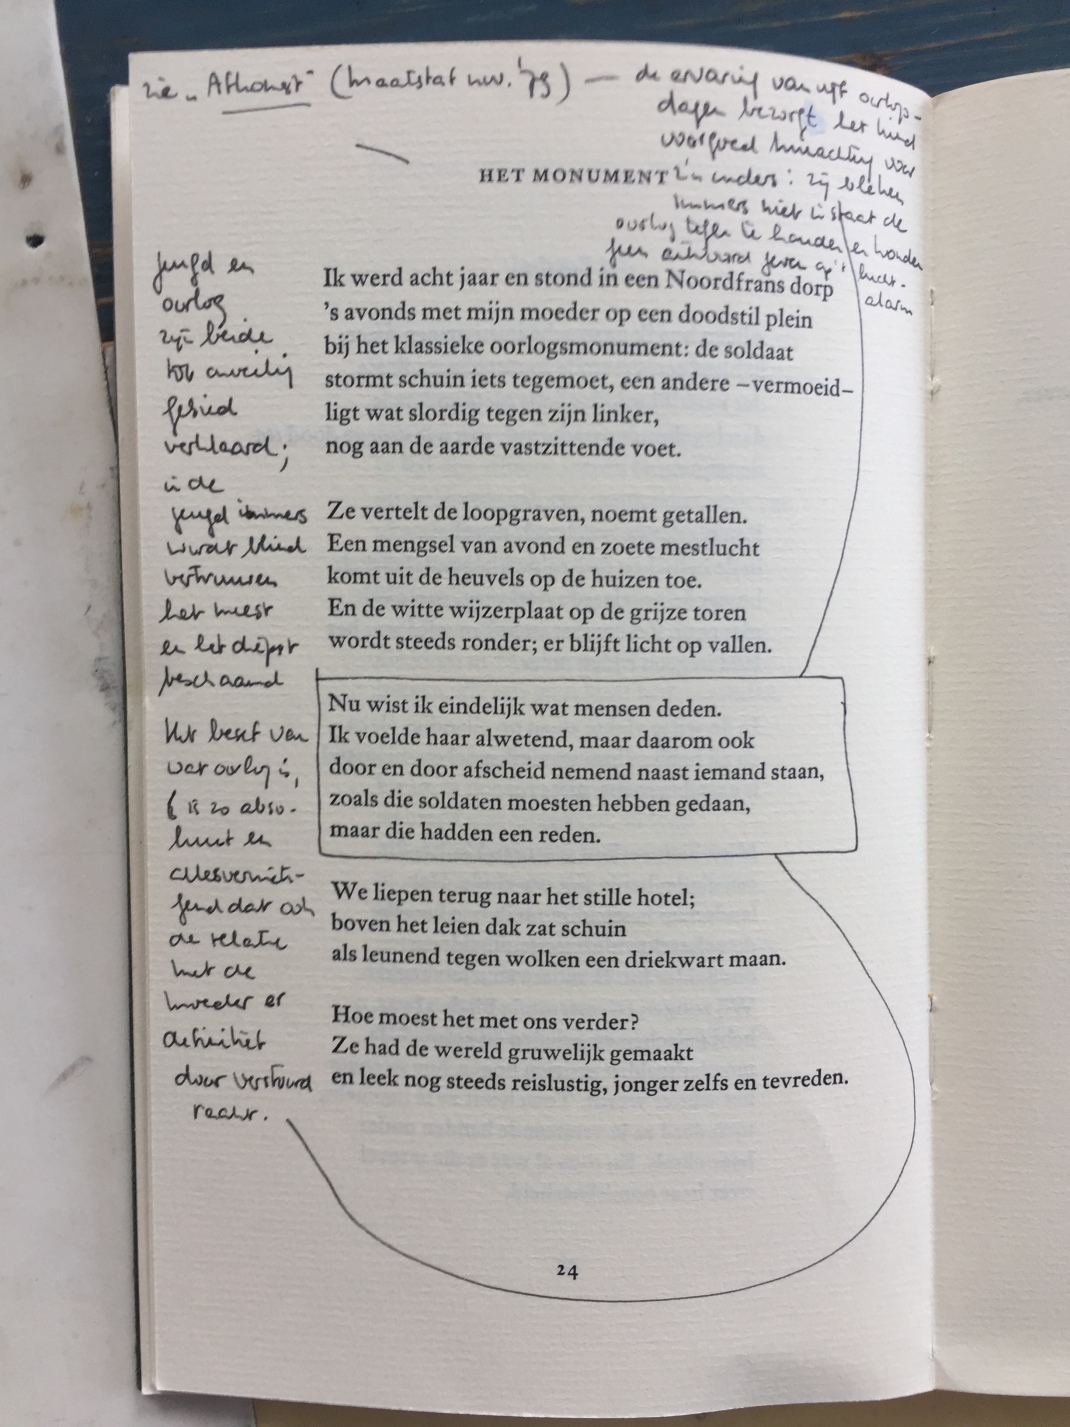 zie „Afkomst" (Maatstaf nov. '79) — de ervaring van vijf oorlogs-
dagen bezorgt het kind
voorgoed minachting voor
z'n ouders: zij bleken
immers niet in staat de
oorlog tegen te houden en konden
geen antwoord geven op 't lucht-
alarm
HET MONUMENT
Jeugd en
oorlog
zijn beide
tot onveilig
gebied
verklaard;
in de
jeugd immers
wordt blind
vertrouwen
het meest
en het diepst
beschaamd
Het besef van
wat oorlog is,
is zo abso-
luut en
allesverniet-
gend dat ook
de relatie
met de
moeder er
definitief
door verstoord
raakt.
Ik werd acht jaar en stond in een Noordfrans dorp
's avonds met mijn moeder op een doodstil plein
bij het klassieke oorlogsmonument: de soldaat
stormt schuin iets tegemoet, een andere –vermoeid–
ligt wat slordig tegen zijn linker,
nog aan de aarde vastzittende voet.
Ze vertelt de loopgraven, noemt getallen.
Een mengsel van avond en zoete mestlucht
komt uit de heuvels op de huizen toe.
En de witte wijzerplaat op de grijze toren
wordt steeds ronder; er blijft licht op vallen.
Nu wist ik eindelijk wat mensen deden.
Ik voelde haar alwetend, maar daarom ook
door en door afscheid nemend naast iemand staan,
zoals die soldaten moesten hebben gedaan,
maar die hadden een reden.
We liepen terug naar het stille hotel;
boven het leien dak zat schuin
als leunend tegen wolken een driekwart maan.
Hoe moest het met ons verder?
Ze had de wereld gruwelijk gemaakt
en leek nog steeds reislustig, jonger zelfs en tevreden.
24